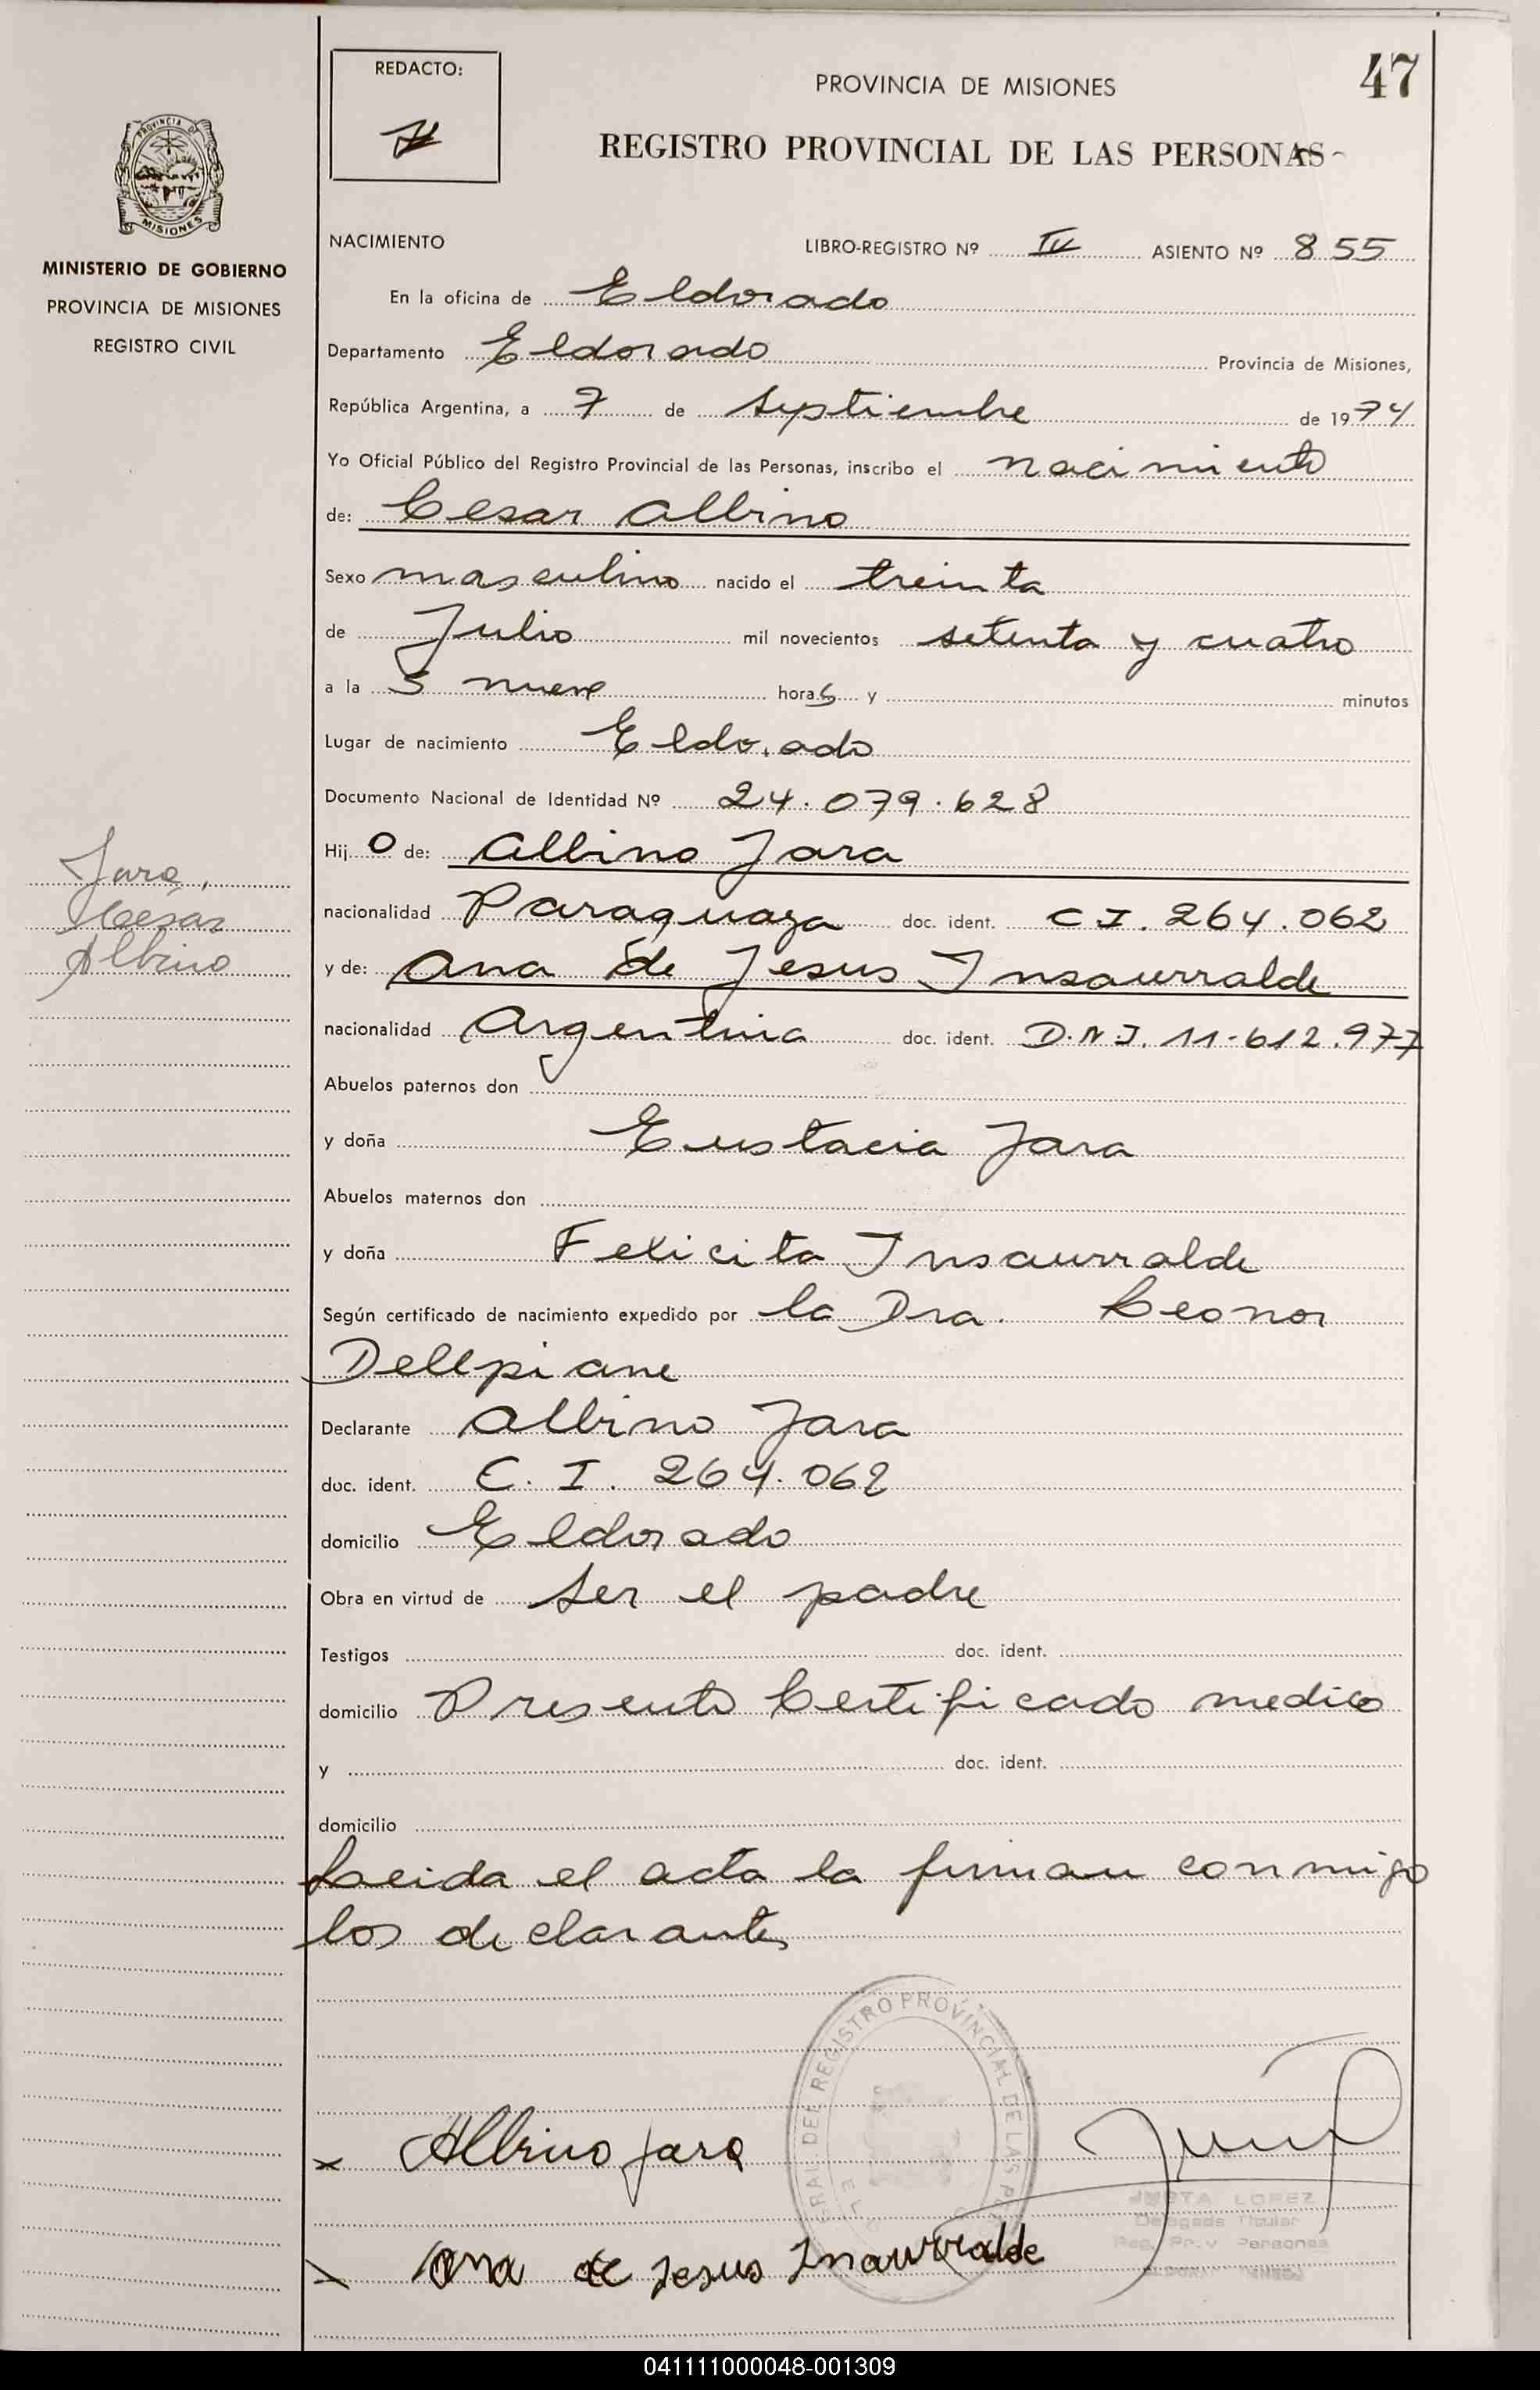 REDACTO:
47
PROVINCIA DE MISIONES
REGISTRO PROVINCIAL DE LAS PERSONAS
PROVINCIA DE
MISIONES
MINISTERIO DE GOBIERNO
PROVINCIA DE MISIONES
REGISTRO CIVIL
NACIMIENTO LIBRO-REGISTRO Nº IV ASIENTO Nº 855
En la oficina de Eldorado
Departamento Eldorado Provincia de Misiones,
República Argentina, a 7 de septiembre de 1974
Yo Oficial Público del Registro Provincial de las Personas, inscribo el nacimiento
de: Cesar Albino
Sexo masculino nacido el treinta
de Julio mil novecientos setenta y cuatro
a la s nueve horas y minutos
Lugar de nacimiento Eldorado
Documento Nacional de Identidad Nº 24.079.628
Hij o de: Albino Jara
nacionalidad Paraguaya doc. ident. C I. 264.062
y de: Ana de Jesus Insaurralde
nacionalidad Argentina doc. ident. D.N.I. 11.612.977
Jara,
César
Albino
Abuelos paternos don
y doña Eustacia Jara
Abuelos maternos don
y doña Felicita Insaurralde
Según certificado de nacimiento expedido por la Dra. Leonor
Dellpiane
Declarante Albino Jara
doc. ident. C. I. 264.062
domicilio Eldorado
Obra en virtud de ser el padre
Testigos doc. ident.
domicilio Presento Certificado medico
y doc. ident.
domicilio
Leida el acta la firman conmigo
los declarantes
GRAL. DEL REGISTRO PROVINCIAL DE LAS
x Albino jara
JUSTA LOPEZ
Delegada Titular
Reg. Prov. Personas
x Ana de Jesus Inaurralde
041111000048-001309